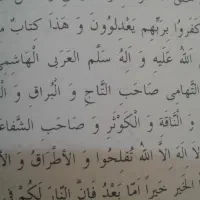 كَفَرُوا بِرَبِّهِم يَعْدِلُوُونَ وَ هَذَا كِتَابٌ
اللهُ عَلَيهِ وَ آلهُ سَلَّم العَرَبى الْهَاشِمِى
التَّهَامِى صَاحِبِ التَّاجِ وَ الْبُرَاقِ وَ
وَ النَّاقَةِ وَ الْكَوْثَرِ وَ صَاحِبِ الشَّفَاعَ
لاَ اِلَهَ اِلاَّ اللهُ تُفْلِحُوا وَ الأَطْرَاقُ وَ
الْخَيرِ خَيراً اَمَّا بَعْدُ فَاِنَّ النَّارَ لَكُمْ فِى